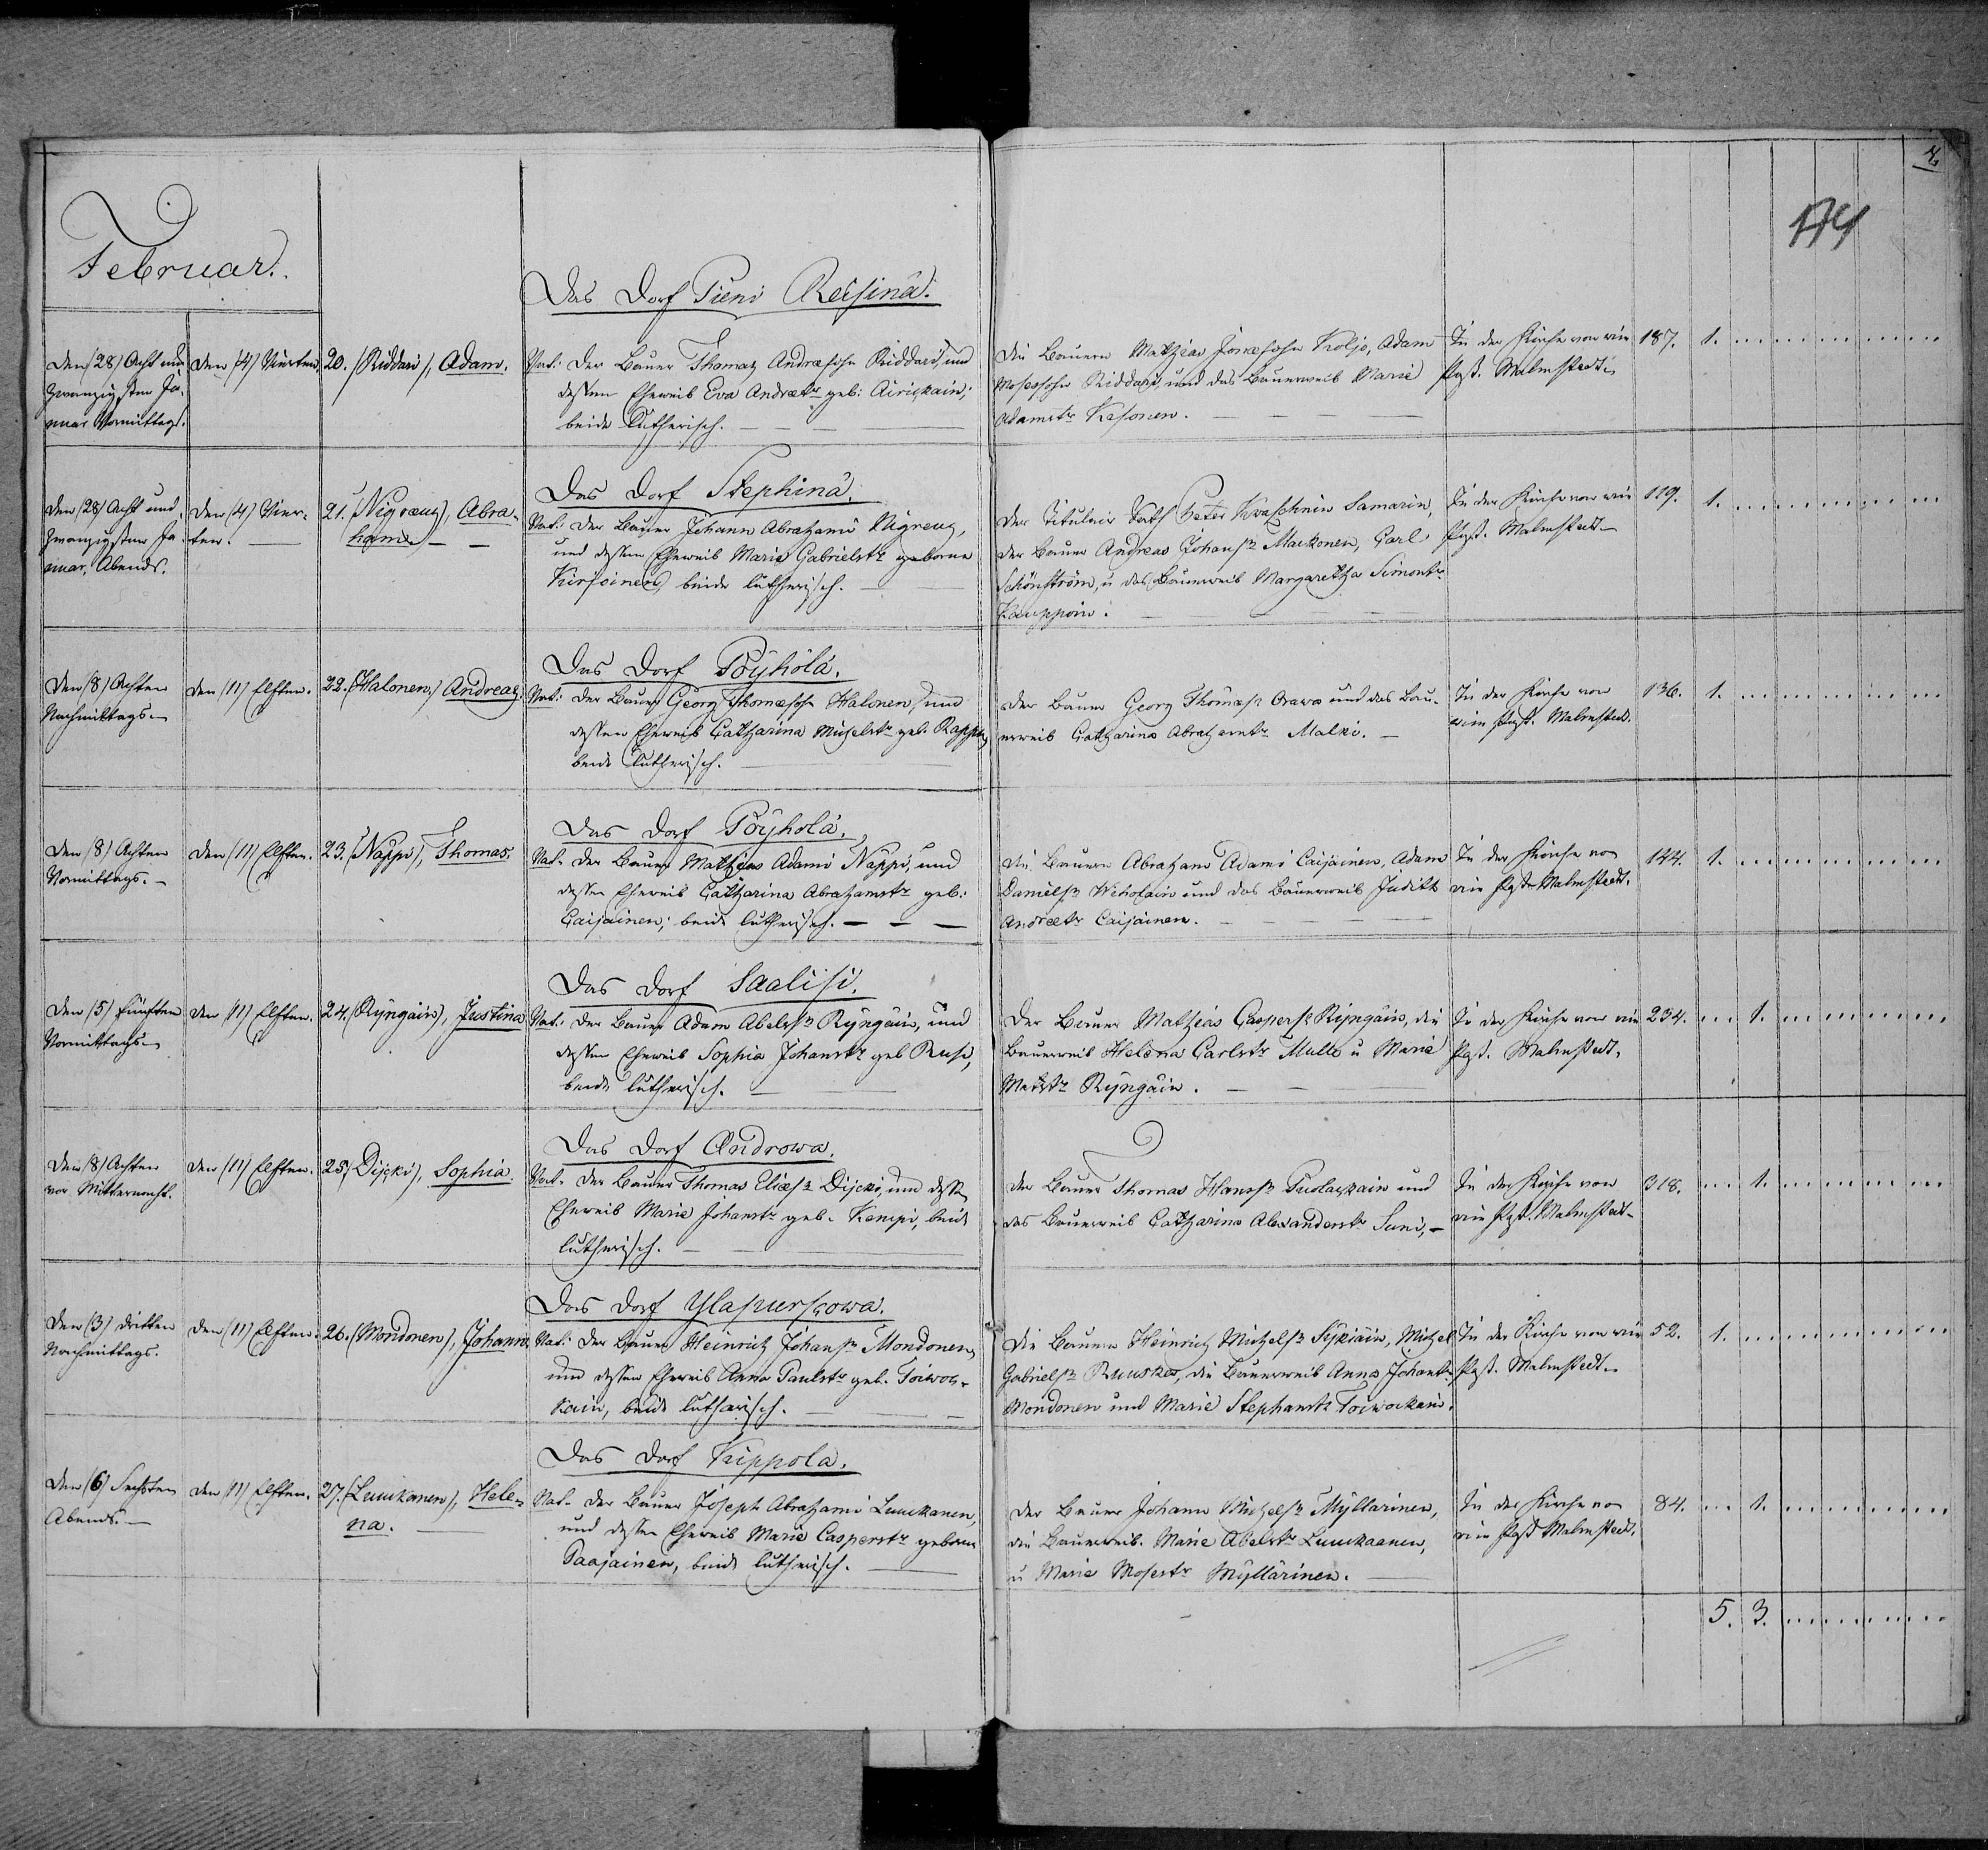 Februar.
Das Dorf Pieni Reisinä.
Den (28) Acht und
zwanzigsten Ja-
nuar Vormittags.
Den (4) Vierten
20. (Riddari), Adam.
Vat: Der Bauer Thomas Andraesohn Riddari, und
dessen Eheweib Eva Andraetr geb: Airickain;
beide Lutherisch.
Die Bauern Mathias Jonaesohn Kolje, Adam
Mosessohn Riddari, und das Bauerweib Maria
Adamstr Kesonen.
In der Kirche von mir
Past. Malmstedt.
187. 1.
Das Dorf Stephinä.
Den (28) Acht und
zwanzigsten Ja-
nuar, Abends.
Den (4) Vier-
ten.
21. (Nigreus), Abra-
ham.
Vat: Der Bauer Johann Abrahami Nigreus,
und dessen Eheweib Maria Gabrielstr geborne
beide lutherisch.
Der Titulair Rath Peter Kwaschnin Samarin,
der Bauer Andreas Johansn Maikonen, Carl
Schönström, u das Bauerweib Margaretha Simonstr
Kauppoin.
In der Kirche von mir
Past. Malmstedt
119. 1.
Das Dorf Pöyhölä.
Den (8) Achten
Nachmittags.
Den (11) Elften.
22. (Halonen) Andreas.
Vat: Der Bauer Georg Thomaesohn Halonen, und
dessen Eheweib Catharina Michelstr geb.
beide lutherisch.
Der Bauer Georg Thomaesn Orawa und das Bau-
erweib Catharina Abrahamstr Malki.
In der Kirche von
mir Past. Malmstedt.
136. 1.
Das Dorf Pöyholä.
Den (8) Achten
Vormittags.
Den (11) Elften.
23. (Näppi), Thomas.
Vat. Der Bauer Mathias Adami Näppi, und
dessen Eheweib Catharina Abrahamstr geb:
Caijainen; beide lutherisch.
Die Bauern Abraham Adami Caijainen, Adam
Danielsn Wiholain und das Bauerweib Judith
Andraetr Caijainen.
In der Kirche von
mir Past. Malmstedt.
144. 1.
Das Dorf Saalisi.
Den (5) Fünften
Vormittags.
Den (11) Elften.
24. (Ryngäin), Justina
Vat: Der Bauer Adam Abelssn Ryngäin, und
dessen Eheweib Sophia Johanstr geb Rusi,
beide lutherisch.
Der Bauer Mathias Caspersn Ryngäin, die
Bauerweib Helena Carlstr Mulle u Maria
Matstr Ryngäin.
In der Kirche von mir
Past. Malmstedt.
234. 1.
Das Dorf Androwa.
Den (8) Achten
vor Mitternacht.
Den (11) Elften.
25. (Dijcki), Sophia.
Vat. Der Bauer Thomas Eliaesn Dijcki, und dessen
Eheweib Maria Johanstr geb. Kempi, beide
lutherisch.
Der Bauer Thomas Hanssn Puolackain und
das Bauerweib Catharina Alexanderstr Suni,
In der Kirche von
mir Past. Malmstedt
318. 1.
Das Dorf Ylapurscowa.
Den (3) Dritten
Nachmittags.
Den (11) Elften.
26. (Mondonen), Johann.
Vat: Der Bauer Heinrich Johansn Mondonen,
und dessen Eheweib Anna Paulstr geb. Toiwon-
kain, beide lutherisch.
Die Bauern Heinrich Michelsn Sykiäin, Michel
Gabrielsn Ruuska, die Bauerweib Anna Johanstr
Mondonen und Maria Stephanstr Toiwockain.
In der Kirche von mir
Past. Malmstedt.
52. 1.
Das Dorf Kippola.
Den (6) Sechsten
Abends.
Den (11) Elften.
27. (Luukanen), Hele-
na.
Vat. Der Bauer Joseph Abrahami Luukanen,
und dessen Eheweib Maria Casperstr geborne
Paajainen, beide lutherisch.
Der Bauer Johann Michelsn Myllärinen,
die Bauerweib. Maria Abelstr Luukaanen,
u Maria Mosestr Myllärinen.
In der Kirche von
mir Past Malmstedt.
84. 1.
5. 3.